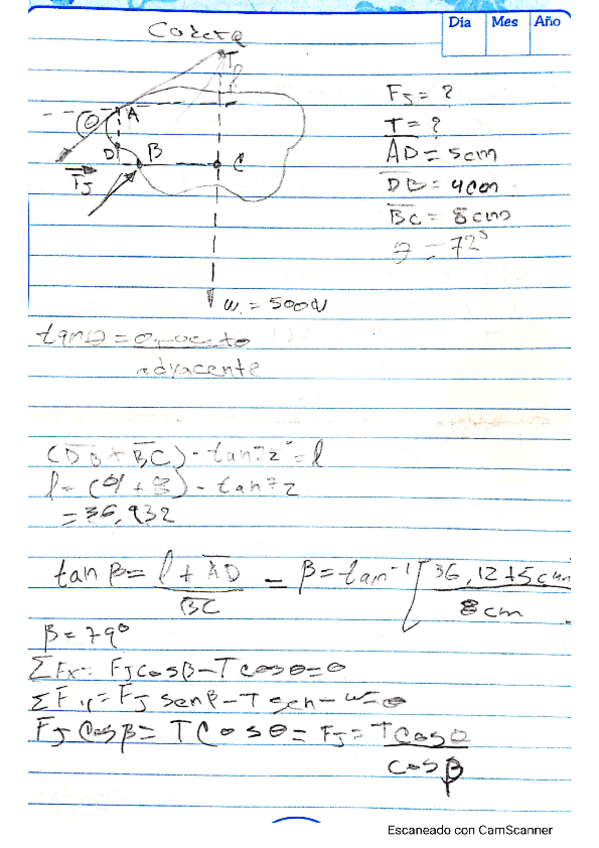 Día Mes Año
Cabeza
T
l
θ A
D B C
FJ
w = 500N
FJ = ?
T = ?
AD = 5cm
DB = 4cm
BC = 8cm
θ = 72°
tanθ = opuesto
adyacente
(DB + BC) - tan72° = l
l = (4 + 8) - tan72
= 36,932
tan β = l + AD = β = tan⁻¹ [ 36,12+5cm
BC 8cm
β = 79°
ΣFx = FJ cosβ - T cosθ = 0
ΣFy = FJ senβ - T sen - w = 0
FJ Cosβ = T Cosθ = FJ = T cosθ
cosβ
Escaneado con CamScanner